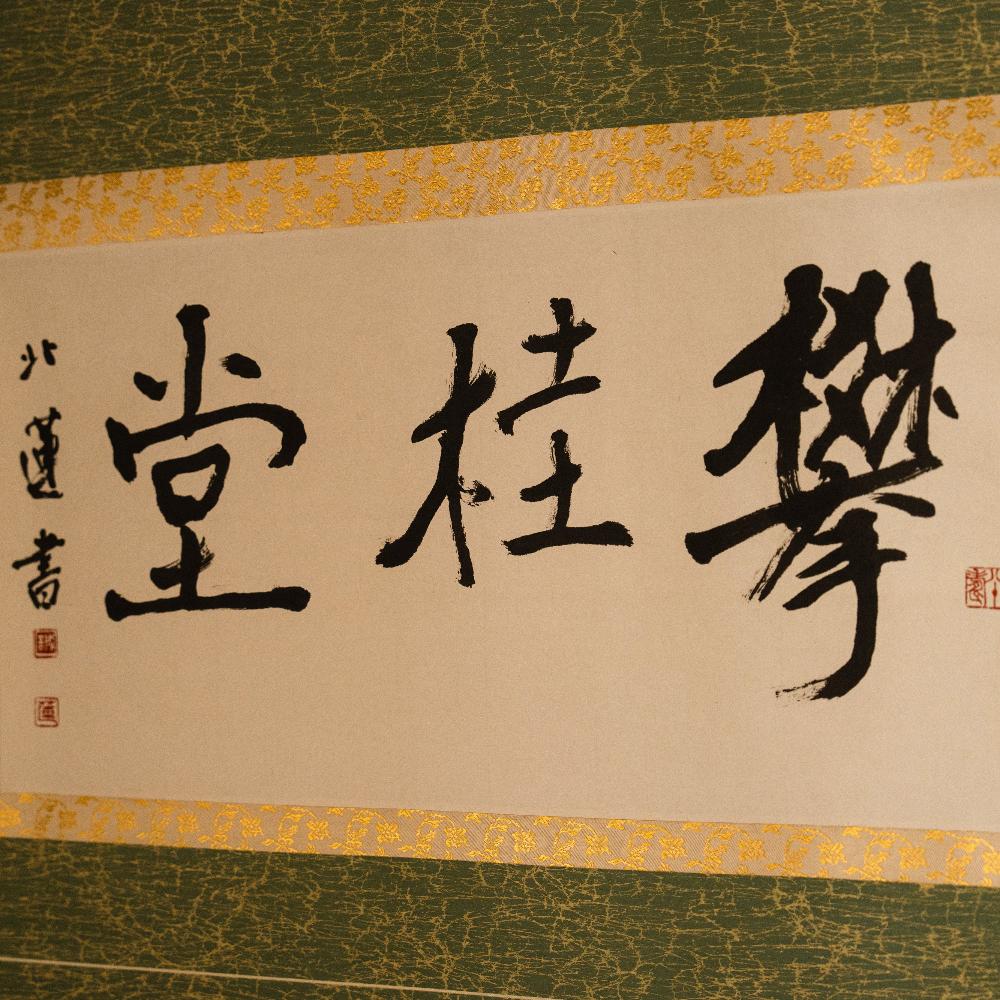 攀桂堂
北蓮書